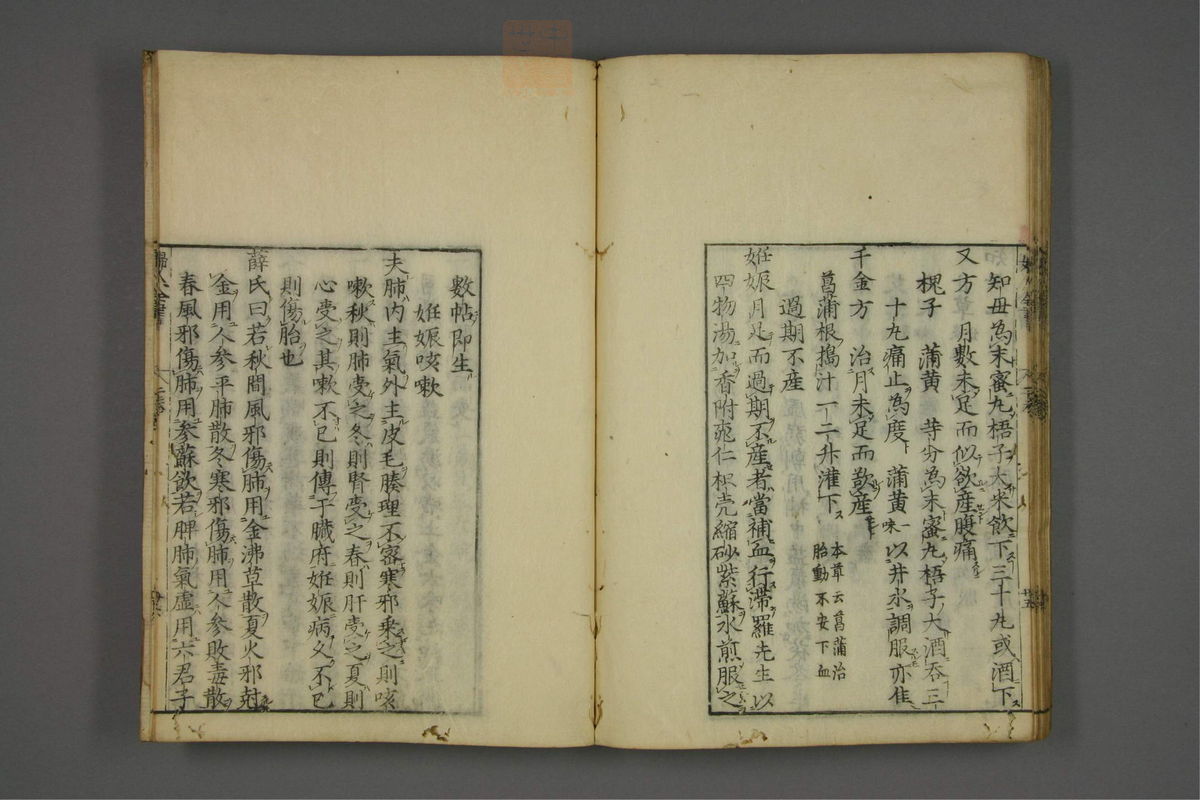 知母為末蜜丸梧子大米飲下三十丸或酒下
又方 月數未足而似欲産腹痛
槐子 蒲黄 等分為末蜜丸梧子大酒吞三
十丸痛止為度 蒲黄一味以井水調服亦佳
千金方 治月未足而欲産
菖蒲根搗汁一二升灌下 本草云菖蒲治
胎動不安下血
過期不産
妊娠月足而過期不産者當補血行滯羅先生以
四物湯加香附桃仁枳壳縮砂紫蘇水煎服之
數帖即生
妊娠咳嗽
夫肺内主氣外主皮毛腠理不密寒邪乗之則咳
嗽秋則肺受之冬則腎受之春則肝受之夏則
心受之其嗽不已則傳于臓府妊娠病久不已
則傷胎也
薛氏曰若秋間風邪傷肺用金沸草散夏火邪尅
金用人参平肺散冬寒邪傷肺用人参敗毒散
春風邪傷肺用参蘇飲若脾肺氣虚用六君子